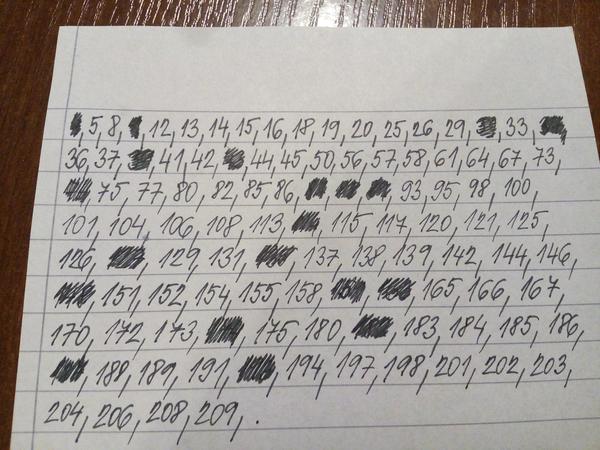 , 5, 8, , 12, 13, 14, 15, 16, 18, 19, 20, 25, 26, 29, , 33, ,
36, 37, , 41, 42, , 44, 45, 50, 56, 57, 58, 61, 64, 67, 73,
, 75, 77, 80, 82, 85, 86, , , , 93, 95, 98, 100,
101, 104, 106, 108, 113, , 115, 117, 120, 121, 125,
126, , 129, 131, , 137, 138, 139, 142, 144, 146,
, 151, 152, 154, 155, 158, , , 165, 166, 167,
170, 172, 173, , 175, 180, , 183, 184, 185, 186,
, 188, 189, 191, , 194, 197, 198, 201, 202, 203,
204, 206, 208, 209, .